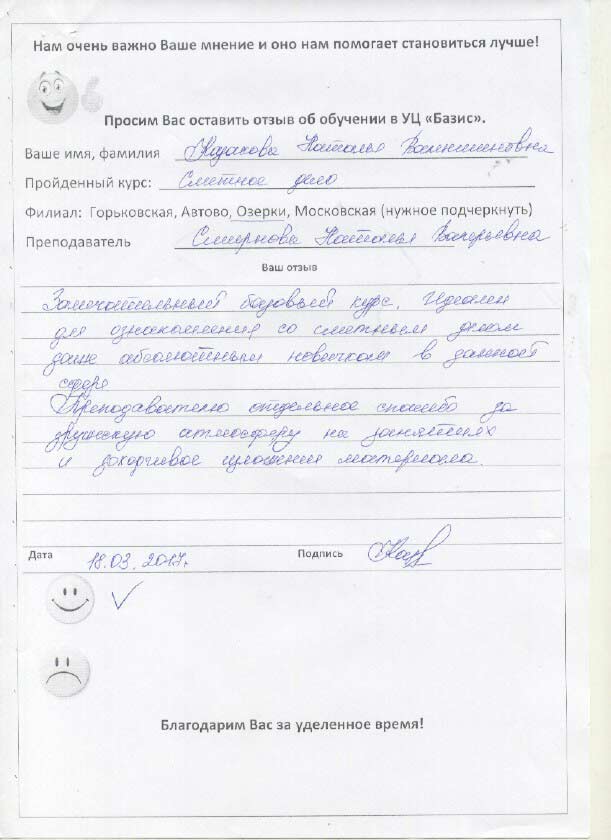 Нам очень важно Ваше мнение и оно нам помогает становиться лучше!
Просим Вас оставить отзыв об обучении в УЦ «Базис».
Ваше имя, фамилия Казакова Наталья Валентиновна
Пройденный курс: Сметное дело
Филиал: Горьковская, Автово, Озерки, Московская (нужное подчеркнуть)
Преподаватель Смирнова Наталья Валерьевна
Ваш отзыв
Замечательный базовый курс. Идеален
для ознакомления со сметным делом
даже абсолютным новичкам в данной
сфере
Преподавателю отдельное спасибо за
дружескую атмосферу на занятиях
и доходчивое изложение материала.
Дата 18.03.2017г. Подпись
Благодарим Вас за уделенное время!